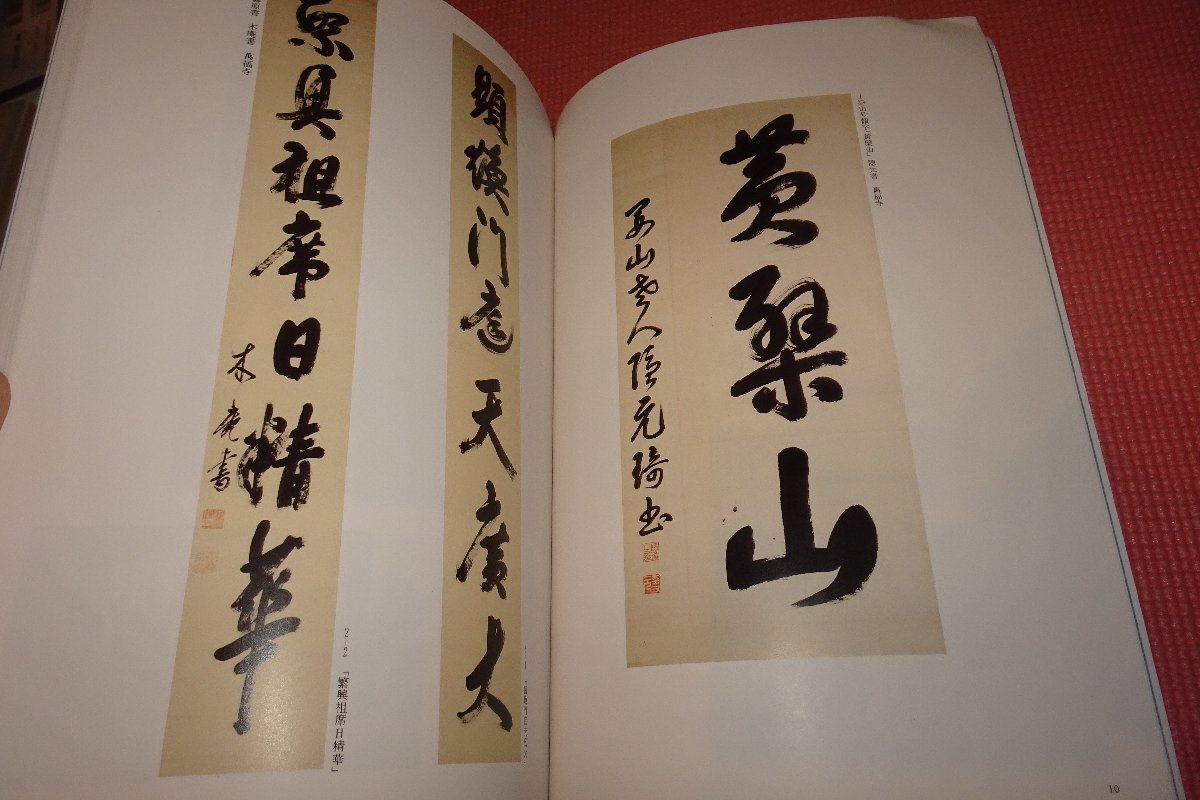 「黄檗山」 隠元書 萬福寺
黄檗山
山老人隱元琦書
顯煥門庭天廣大
繁興祖席日精華
木菴書
2-2 「繁興祖席日精華」
木庵書 萬福寺
10